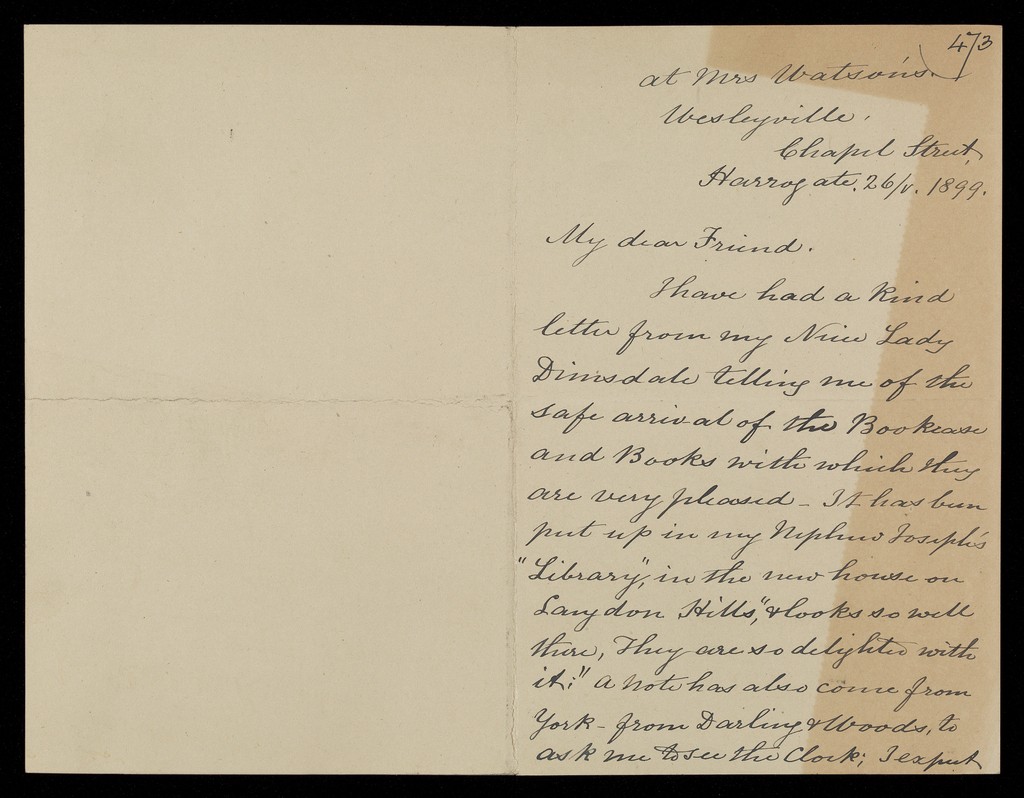 473
at Mrs Watson's.
Wesleyville.
Chapel Street,
Harrogate. 26/v. 1899.
My dear Friend.
I have had a kind
letter from my Niece Lady
Dimsdale telling me of the
safe arrival of the Bookcase
and Books with which they
are very pleased - It has been
put up in my Nephew Joseph's
"Library", in the new house on
Langdon Hills", & looks so well
there, They are so delighted with
it:" A note has also come from
York - from Darling & Woods, to
ask me to see the Clock; I expect